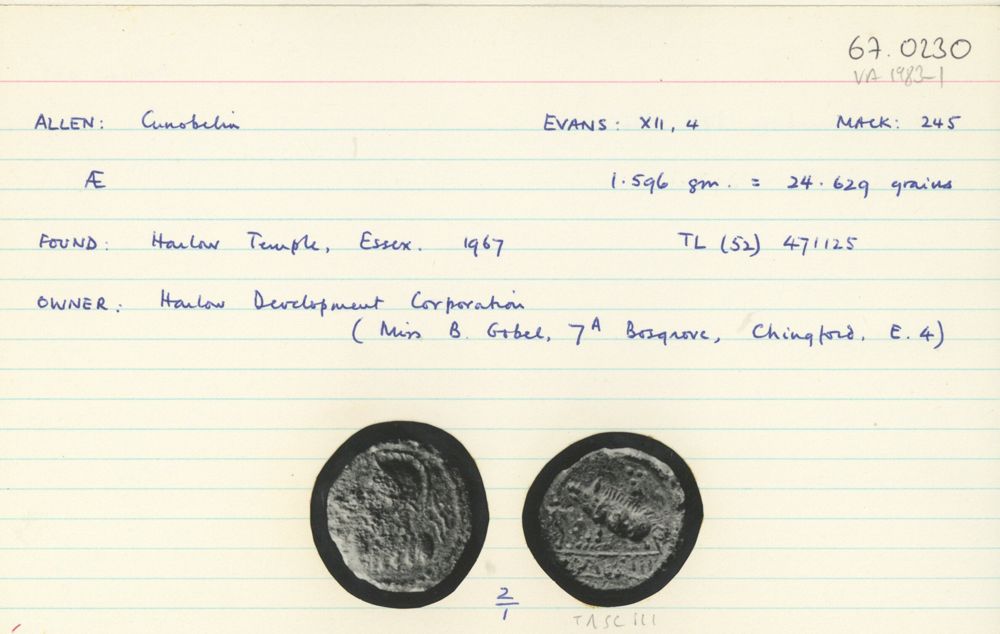 67.0230
VA 1983-1
ALLEN: Cunobelin EVANS: XII, 4 MACK: 245
Æ 1.596 gm. = 24.629 grains
FOUND: Harlow Temple, Essex. 1967 TL (52) 471125
OWNER: Harlow Development Corporation
(Miss B. Gobel, 7A Bosgrove, Chingford, E.4)
2/1
TASCIII